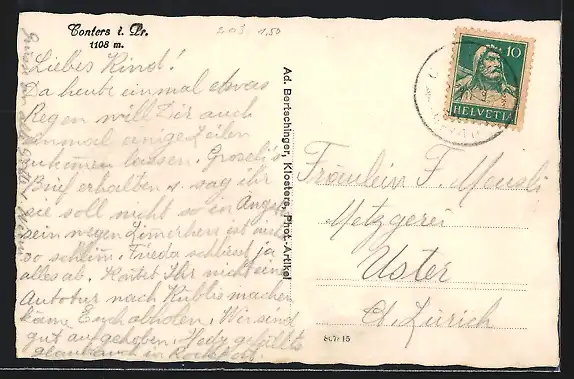 Conters i. Pr.
1108 m.
203 1,50
Liebes Kind!
Da heute einmal etwas
Regen will Dir auch
einmal einige Zeilen
zukommen lassen. Groseli's
Brief erhalten u. sag ihr
sie soll nicht so in Angst
sein wegen Zimerherr ist nicht
so schlim. Frieda schliesst ja
alles ab. Könntet Ihr nicht eine
Autotur nach Küblis machen
käme Euch abholen. Wir sind
gut aufgehoben. Hedy gefällt's
glaub auch in
Ad. Bertschinger, Klosters, Phot.-Artikel
10
HELVETIA
Fräulein F.
Metzgerei
Uster
Ct. Zürich
15